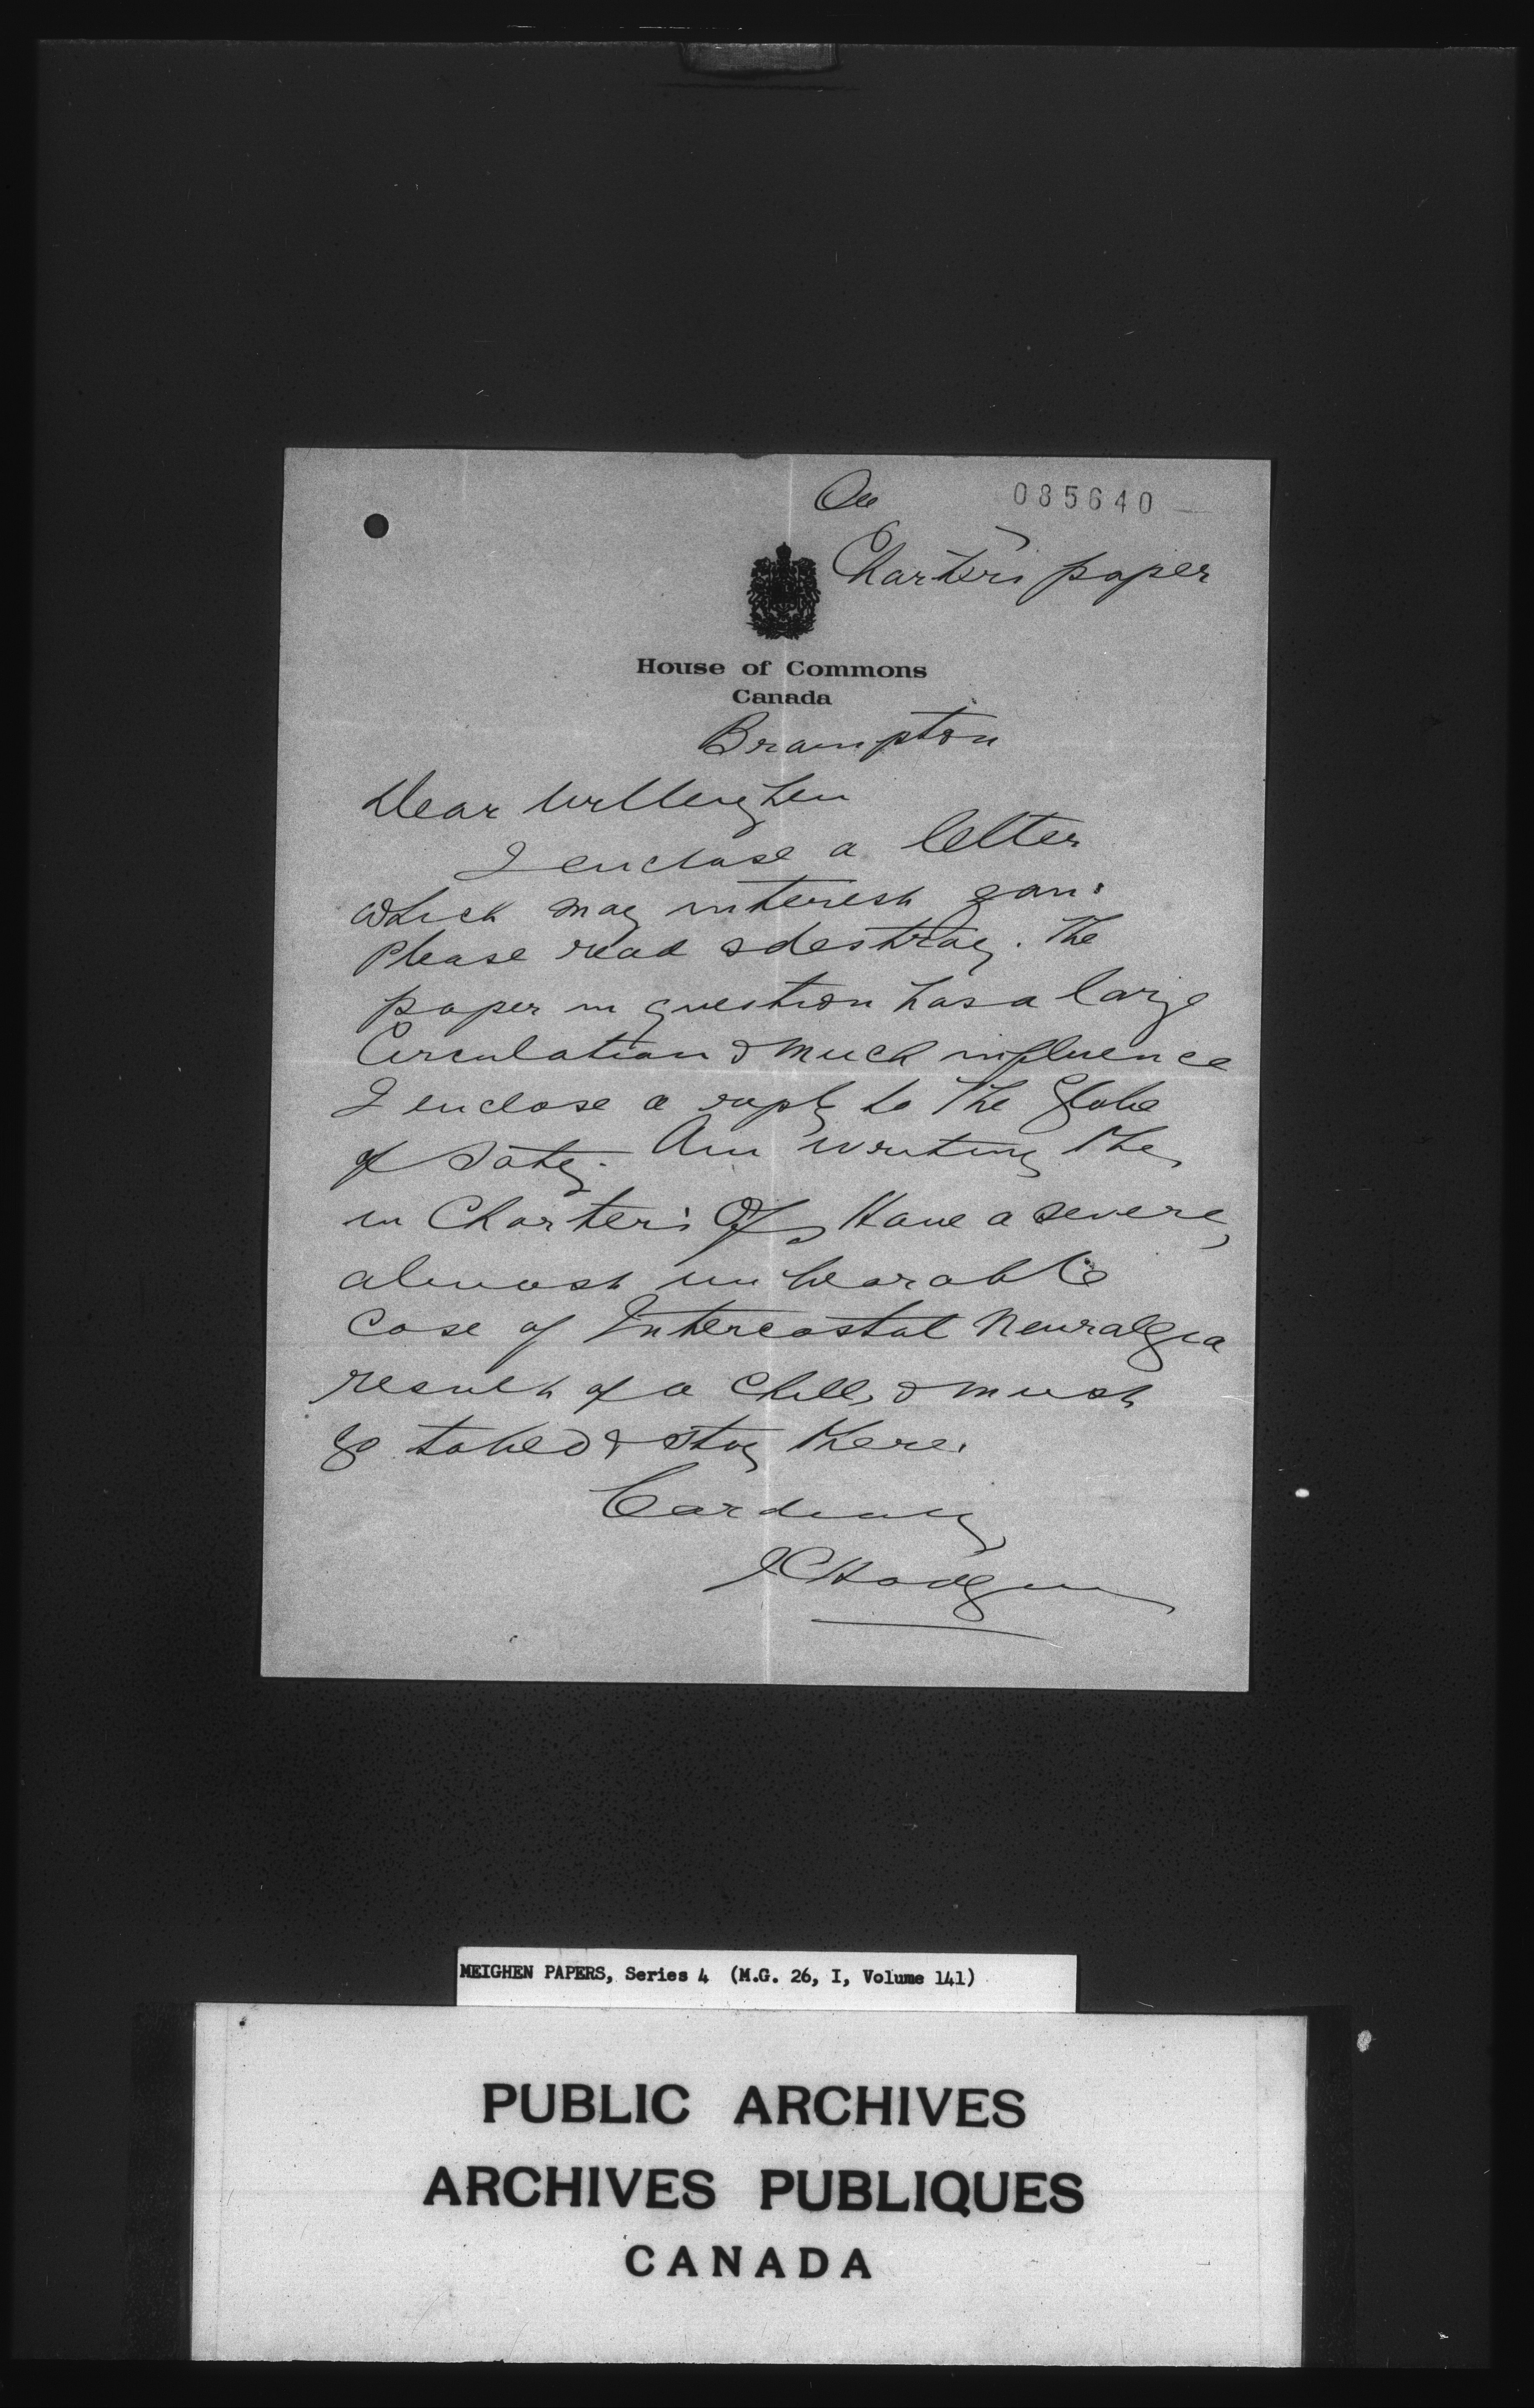 On
085640
Charters paper
House of Commons
Canada
Brampton
Dear Mr Meighen
I enclose a letter
which may interest you.
Please read & destroy. The
paper in question has a large
Circulation & much influence
I enclose a reply to The Globe
of Saty. Am writing the
in Charters Ofs Have a severe,
almost unbearable
Case of Intercostal Neuralgia
result of a chill, & must
go to bed & stay there.
Cordially
JC Hodgins
MEIGHEN PAPERS, Series 4 (M.G. 26, I, Volume 141)
PUBLIC ARCHIVES
ARCHIVES PUBLIQUES
CANADA